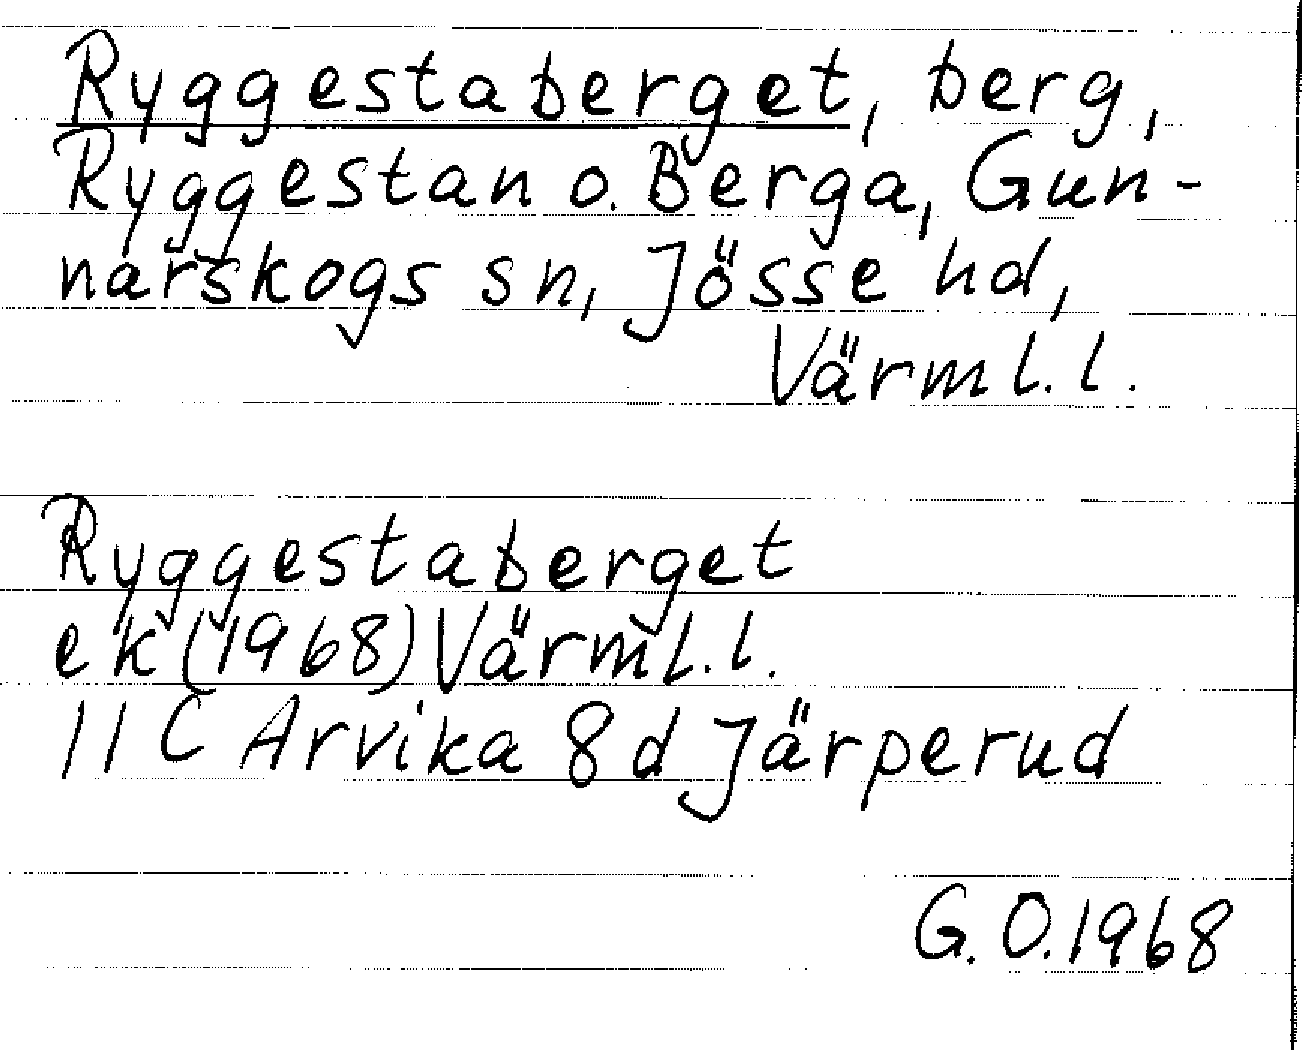 Ryggestaberget, berg,
Ryggestan o. Berga, Gun-
narskogs sn, Jösse hd,
Värml. l.
Ryggestaberget
ek (1968) Värml. l.
11 C Arvika 8 d Järperud
G. O. 1968